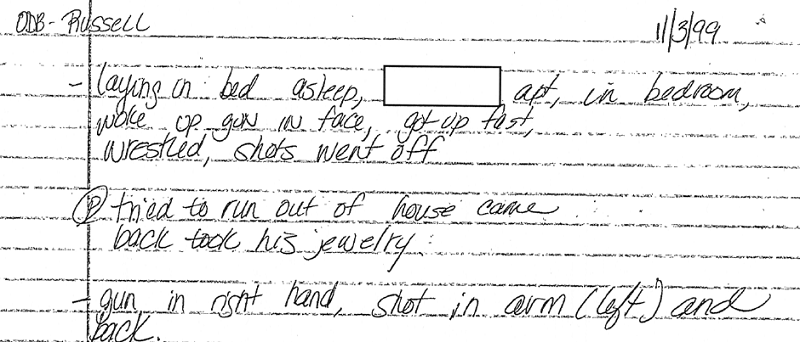 ODB - Russell 11/3/99
- laying on bed asleep, apt, in bedroom,
woke up gun in face, got up fast,
wrestled, shots went off
(P) tried to run out of house came
back took his jewelry.
- gun in right hand, shot in arm (left) and
back.